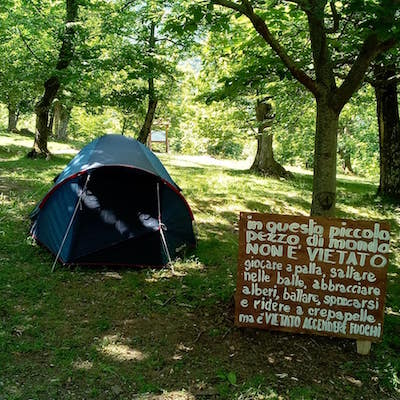 in questo piccolo
pezzo di mondo
NON È VIETATO
giocare a palla, saltare
nelle balle, abbracciare
alberi, ballare, sporcarsi
e ridere a crepapelle
ma È VIETATO ACCENDERE FUOCHI